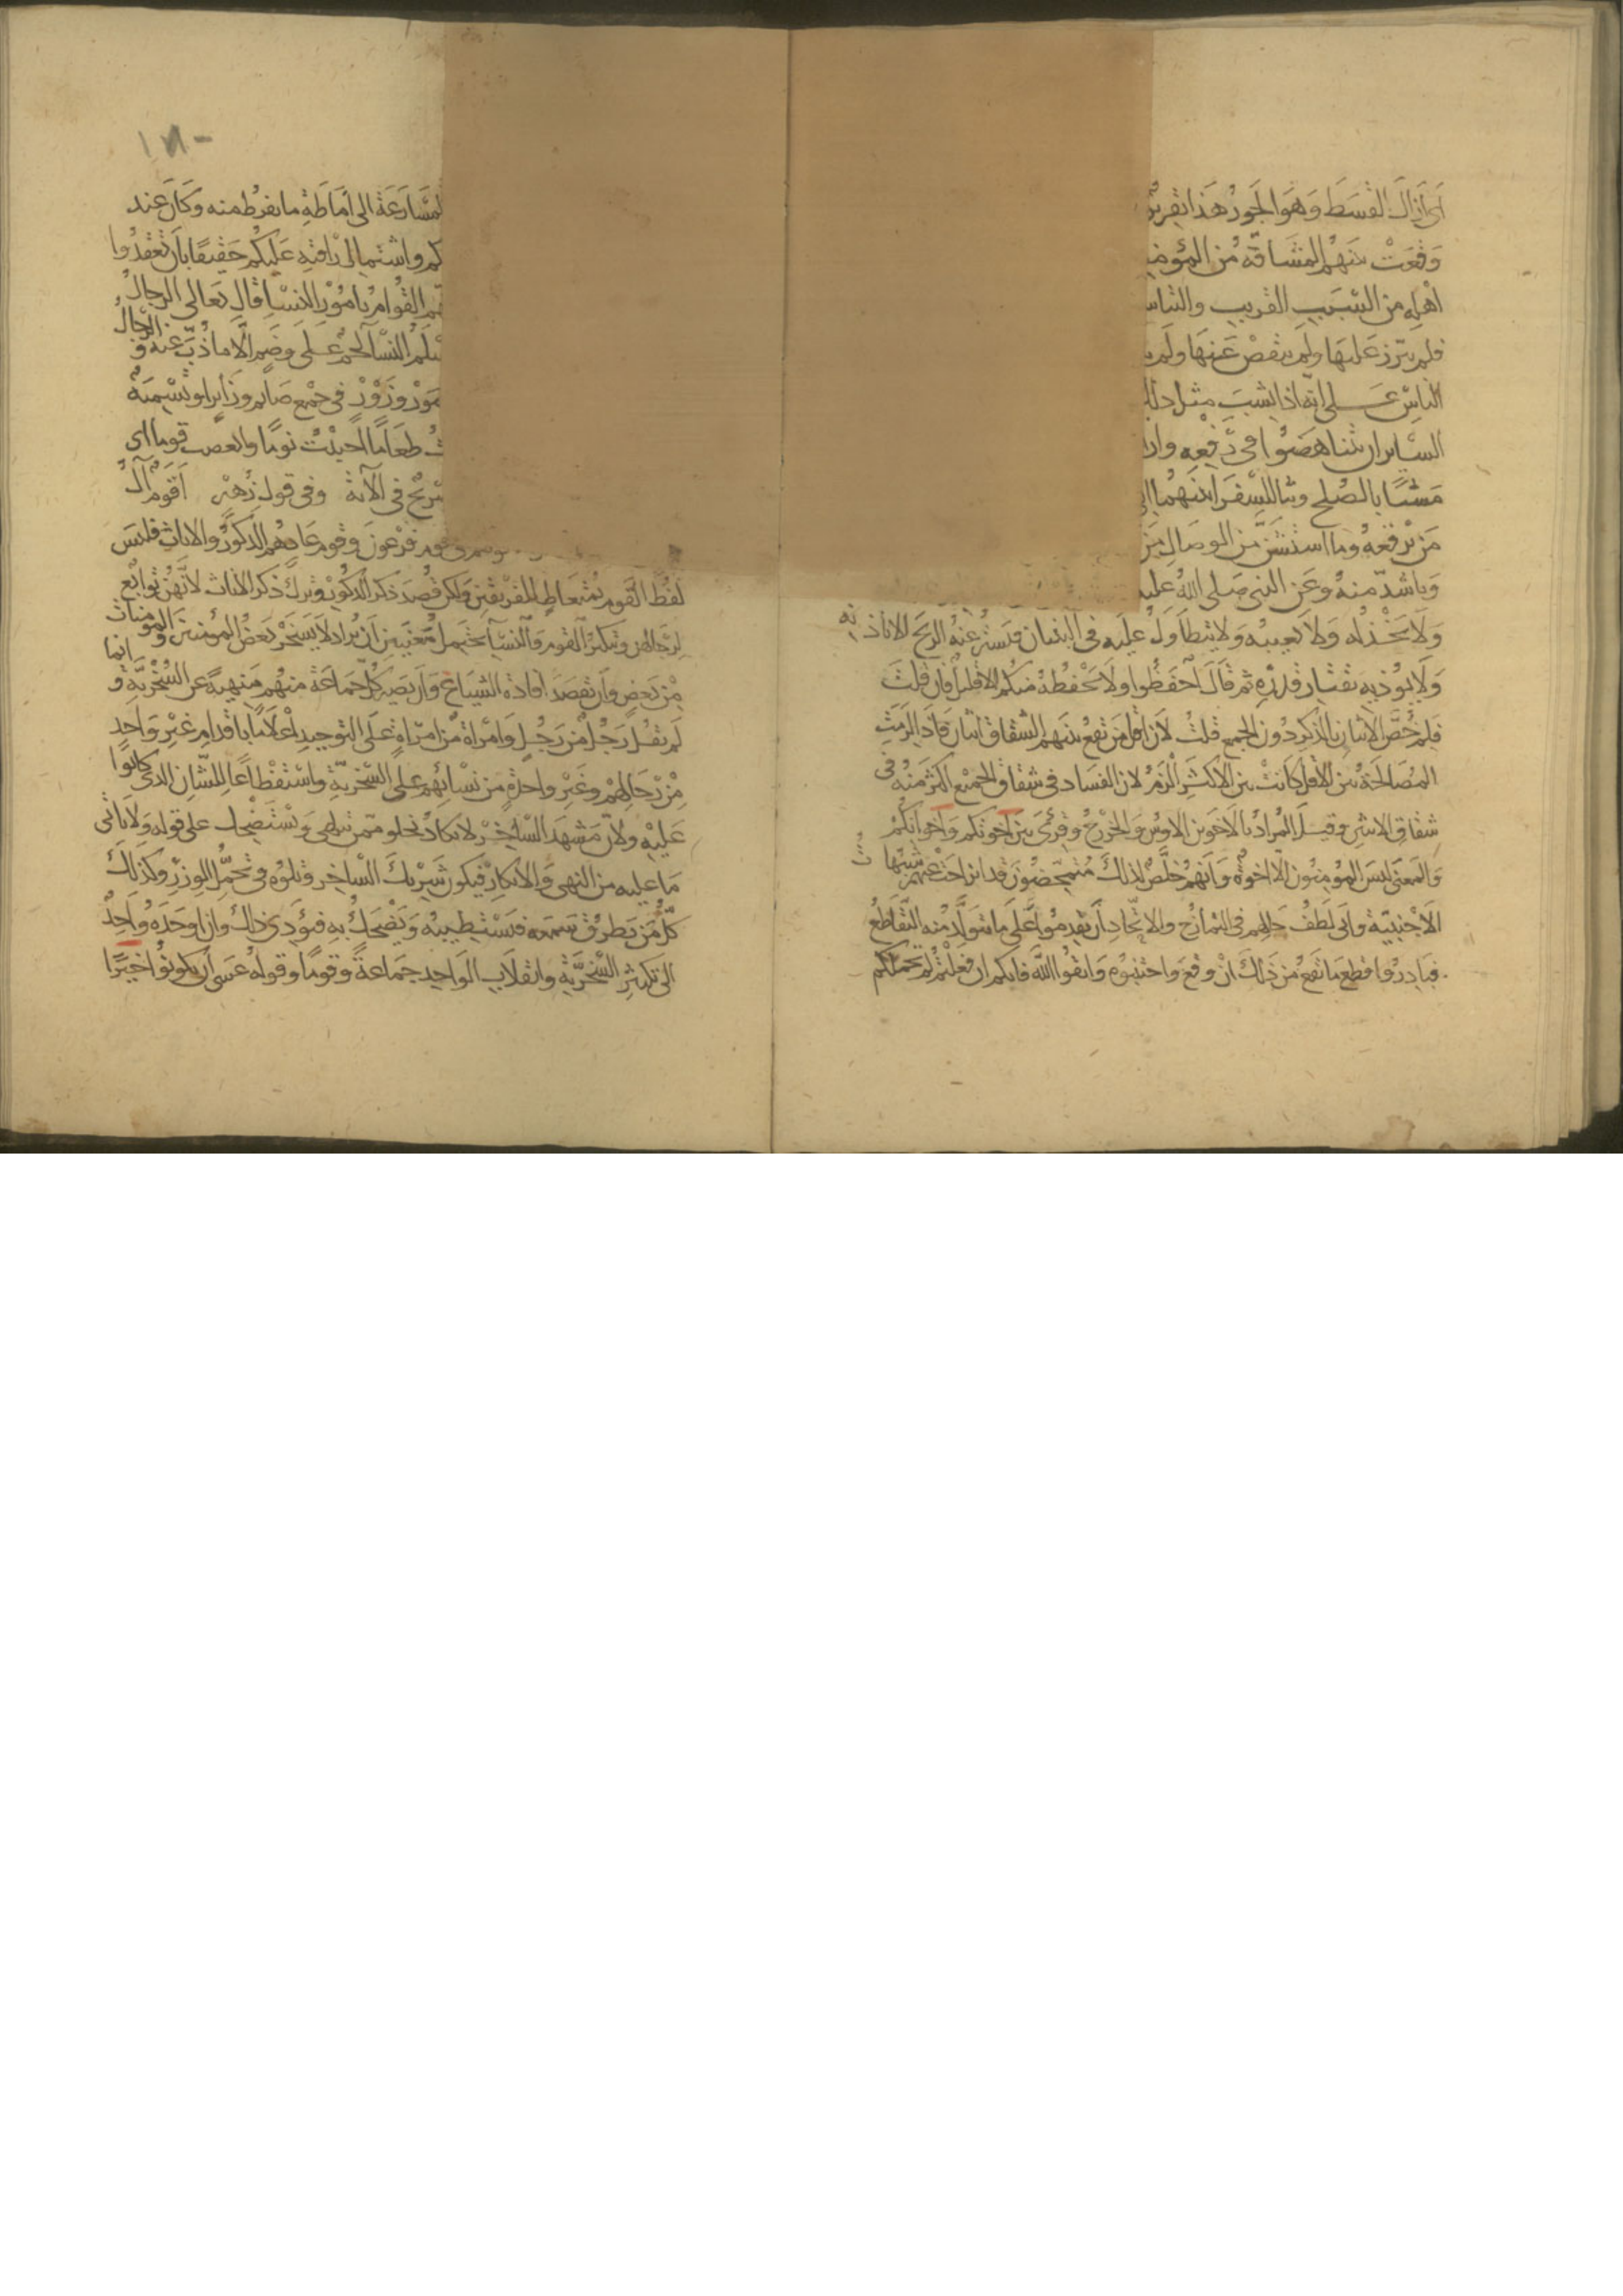 اى ازال القسط وهو الجور هذا تقرير
وقعت بينهم المشاقة من المؤمنين
اهله من السبب القريب والنسب
فلم يبرز عليها ولم ينقص عنها ولم
الناس على انه اذا نشب مثل ذلك
السائر ان يتناهضوا فى رفعه واز
مشيا بالصلح وبثا للسفراء بينهما الى
من يرقعه وما استشن من الوصال من
وباشد منه وعن النبى صلى الله عليه
ولا يخذله ولا يعيبه ولا يتطاول عليه فى البنيان فيستر عنه الريح الا باذنه
ولا يؤذيه بقتار قدره ثم قال احفظوا ولا يحفظه منكم الا قليل فان قلت
فلم خص الاثنان بالذكر دون الجمع قلت لان اقل من يقع بينهم الشقاق اثنان فاذا لزمت
المصالحة بين الاقل كانت بين الاكثر الزم لان الفساد فى شقاق الجمع اكثر منه فى
شقاق الاثنين وقيل المراد بالاخوين الاوس والخزرج وقرئ بين اخوتكم واخوانكم
والمعنى ليس المؤمنون الا اخوة وانهم خلص لذلك متمحضون قد انزاحت عنهم شبهات
الاجنبية وابى لطف حالهم فى التمازج والاتحاد ان يقدموا على ما يتولد منه التقاطع
فبادروا قطع ما يقع من ذلك ان وقع واحتنبوه واتقوا الله فانكم ان فعلتم لم تحملكم
١٧١
المسارعة الى اماطة ما يفرط منه وكان عند
كم واشتمال رافته عليكم حقيقا بان تعقدوا
هم القوام بامور النساء قال تعالى الرجال
النساء لحم على وضم الا ما ذب عنه والرجال
وزور فى جمع صائم وزائر او تسميته
طعاما احببت نوما وابغضت قوما اى
فى الآية وفى قول زهير اقوم آل
فرعون وقوم عاد هم الذكور والاناث فليس
لفظ القوم بمتعاط للفريقين ولكن قصد ذكر الذكور وترك ذكر الاناث لانهن توابع
لرجالهن وتنكير القوم والنساء يحتمل معنيين ان يراد لا يسخر بعض المؤمنين والمومنات
من بعض وان تقصد افادة الشياع وان يصير كل جماعة منهم منهية عن السخرية وانما
لم يقل رجل من رجل وامراة من امراة على التوحيد اعلاما باقدام غير واحد
من رجالهم وغير واحدة من نسائهم على السخرية واستفظاعا للشان الذى كانوا
عليه ولان مشهد الساخر لا يكاد يخلو ممن يتلهى ويستضحك على قوله ولا ياتى
ما عليه من النهى والانكار فيكون شريك الساخر وتلوه فى تحمل الوزر وكذلك
كل من يطرق سمعه فيستطيبه ويضحك به فيؤدى ذلك وان اوجده واحد
الى تكثر السخرية وانقلاب الواحد جماعة وقوما وقوله عسى ان يكونوا خيرا